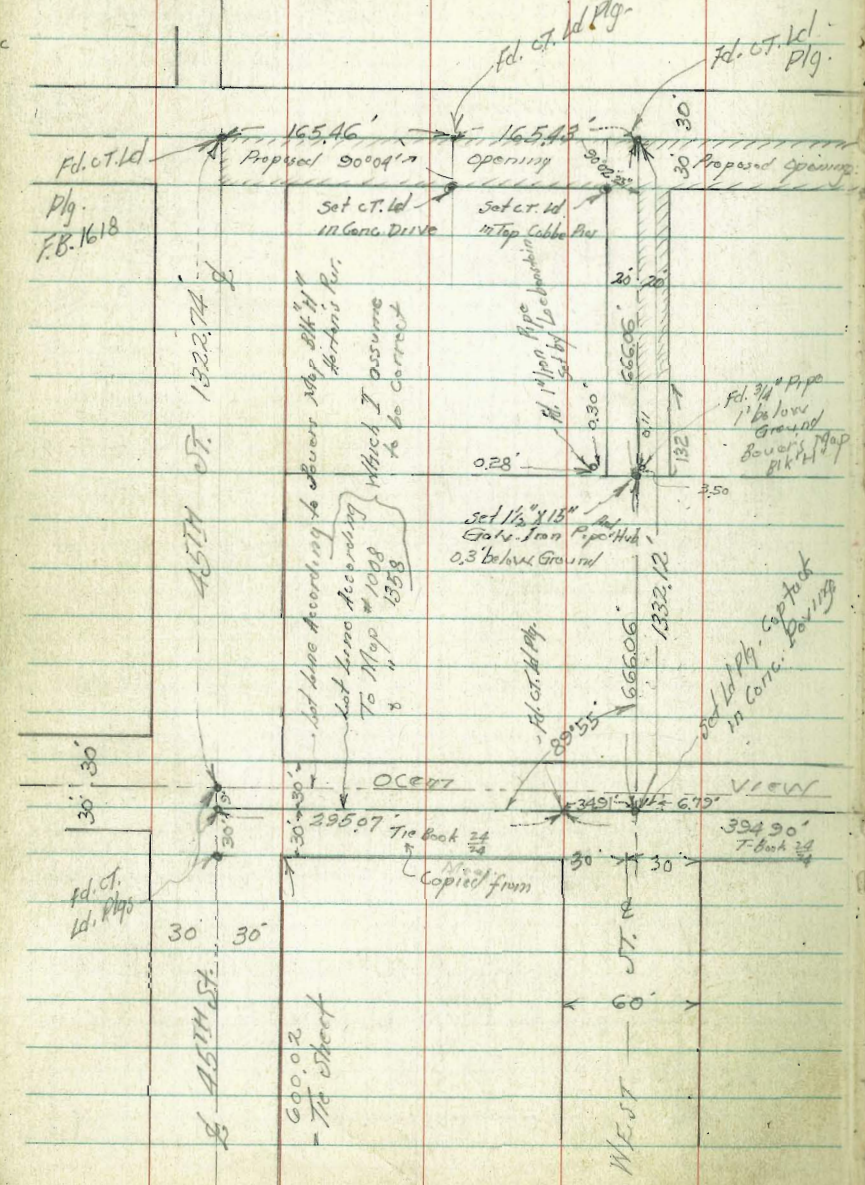 Fd. CT. Ld Plg.
Fd. CT. Ld.
Plg.
30'
30'
165.46'
165.43'
Fd. CT. Ld
Plg.
F.B. 1618
Proposed 90°04'
Opening
90°02'
Proposed Opening
Set CT. Ld
in Conc. Drive
Set CT. Ld
in Top Cobble Pier
Fd. 1" Iron Pipe
Set by
20' 20'
666.06'
0.30'
0.11
132
Fd. 3/4" Pipe
1' below
Ground
Bower's Map
Blk "H"
0.28'
3.50
Set 1½" X 15"
Galv. Iron Pipe And Hub
0.3' below Ground
45TH ST. 1322.74' ℄
Lot Line According to Bowers Map Blk "H"
Horton's Pur.
Lot Line According
To Map #1008
& " 1358
Which I assume
to be Correct
Fd. CT. Ld Plg.
89°55'
666.06'
1332.12'
Set Ld Plg. Cap tack
in Conc. Paving
30' 30'
OCEAN
VIEW
30' 30'
295.07'
Tie Book 24/74
Copied from
34.91'
6.79'
394.90'
T-Book 24/74
30' 30'
Fd. CT.
Ld. Plgs
30' 30'
℄ 45TH St.
600.02
= Tie Sheet
60'
WEST ST. ℄